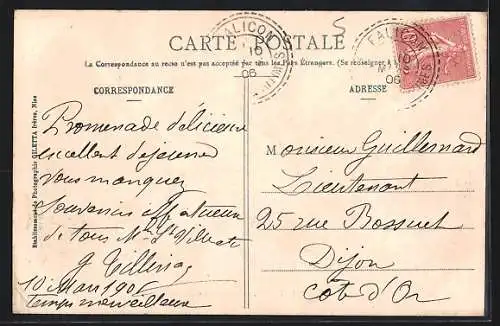 CARTE POSTALE
La Correspondance au recto n'est pas acceptée par tous les Pays Étrangers. (Se renseigner à
CORRESPONDANCE
ADRESSE
Promenade délicieuse
excellent déjeuner
vous manquez
Souvenirs affectueux
de tous
10 Mars 1906
temps merveilleux
Monsieur Guillemard
Lieutenant
25 rue Bossuet
Dijon
Côte d'Or
Etablissements de Photographie GILETTA frères, Nice
FALICON
10
06
FALICON
10
06
5